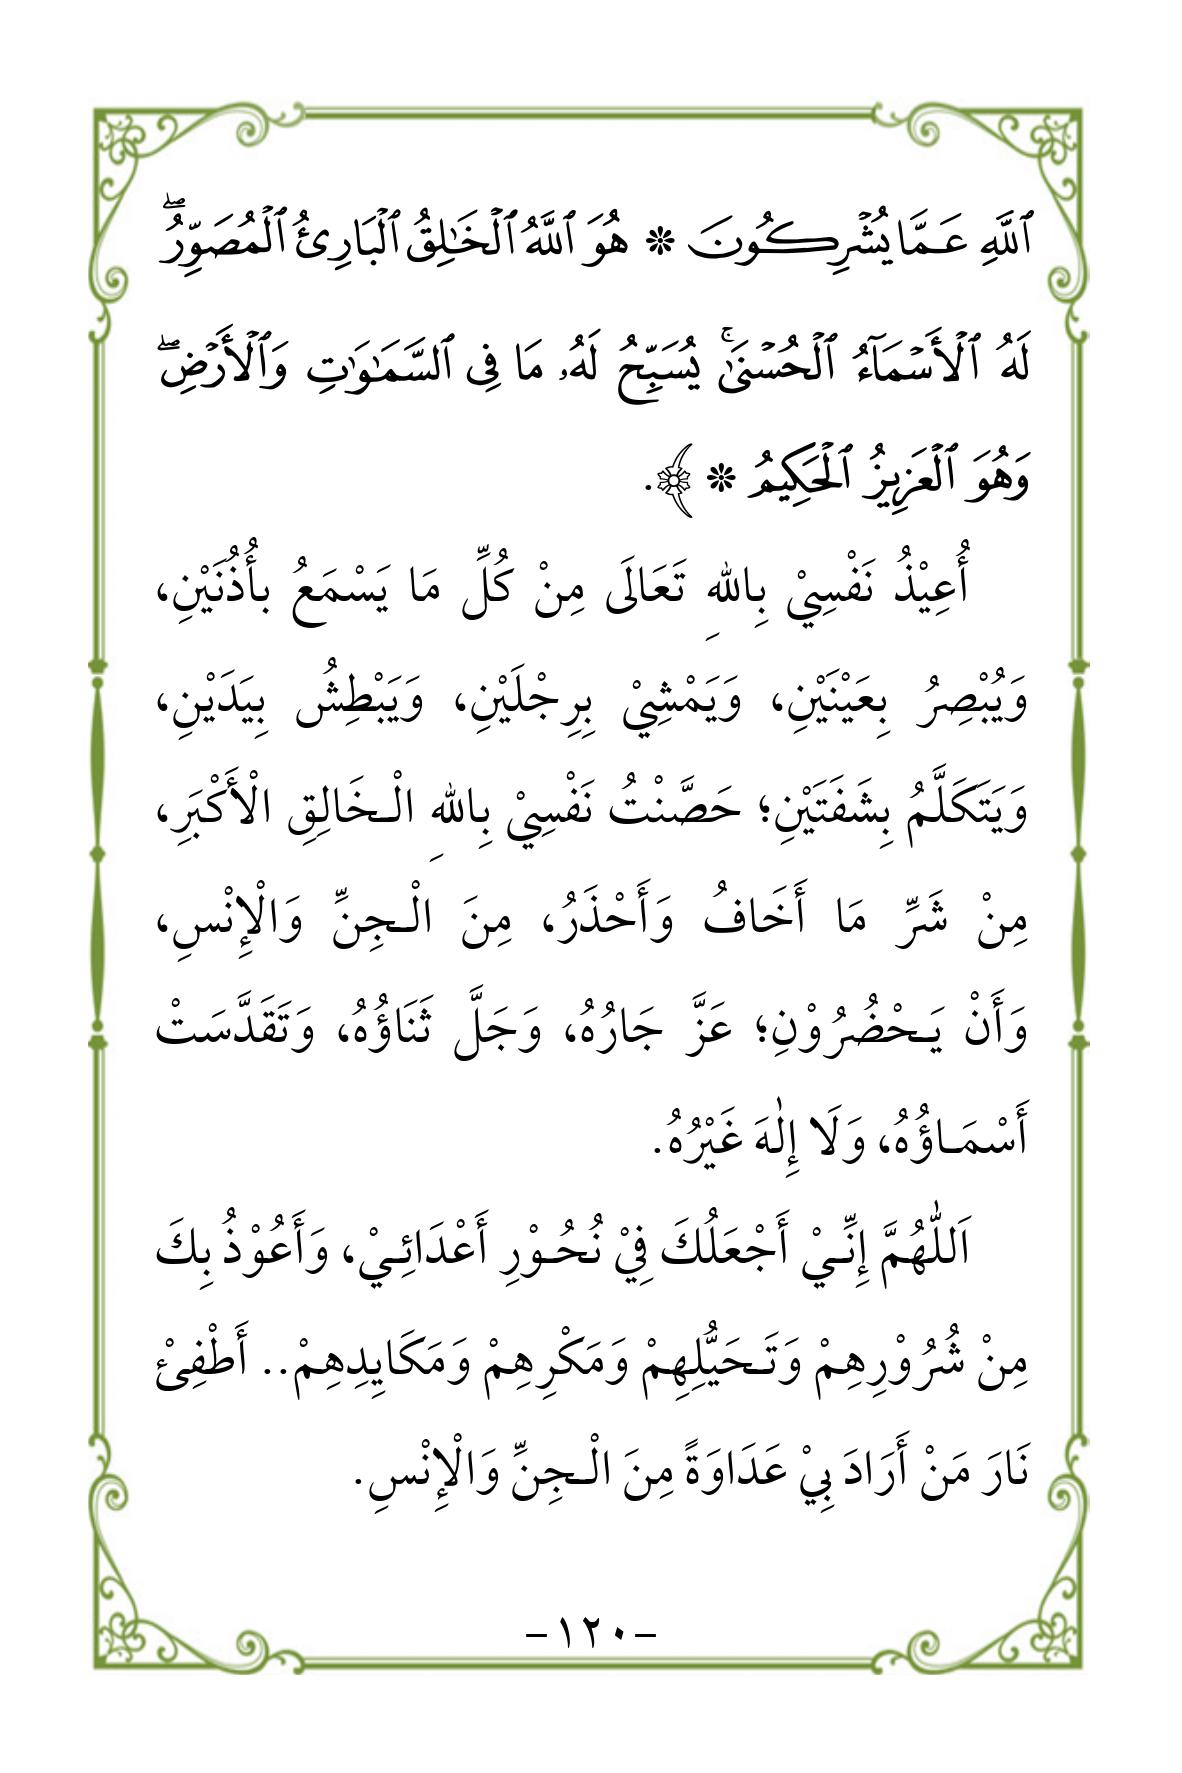 ٱللَّهِ عَمَّا يُشْرِكُونَ ❊ هُوَ ٱللَّهُ ٱلْخَٰلِقُ ٱلْبَارِئُ ٱلْمُصَوِّرُ ۖ
لَهُ ٱلْأَسْمَآءُ ٱلْحُسْنَىٰ ۚ يُسَبِّحُ لَهُۥ مَا فِى ٱلسَّمَٰوَٰتِ وَٱلْأَرْضِ ۖ
وَهُوَ ٱلْعَزِيزُ ٱلْحَكِيمُ ❊ ﴾.
أُعِيْذُ نَفْسِيْ بِاللهِ تَعَالَى مِنْ كُلِّ مَا يَسْمَعُ بأُذُنَيْنِ،
وَيُبْصِرُ بِعَيْنَيْنِ، وَيَمْشِيْ بِرِجْلَيْنِ، وَيَبْطِشُ بِيَدَيْنِ،
وَيَتَكَلَّمُ بِشَفَتَيْنِ؛ حَصَّنْتُ نَفْسِيْ بِاللهِ الْـخَالِقِ الْأَكْبَرِ،
مِنْ شَرِّ مَا أَخَافُ وَأَحْذَرُ، مِنَ الْـجِنِّ وَالْإِنْسِ،
وَأَنْ يَـحْضُرُوْنِ؛ عَزَّ جَارُهُ، وَجَلَّ ثَنَاؤُهُ، وَتَقَدَّسَتْ
أَسْمَـاؤُهُ، وَلَا إِلٰهَ غَيْرُهُ.
اَللّٰهُمَّ إِنِّـيْ أَجْعَلُكَ فِيْ نُحُـوْرِ أَعْدَائِـيْ، وَأَعُوْذُ بِكَ
مِنْ شُرُوْرِهِمْ وَتَـحَيُّلِهِمْ وَمَكْرِهِمْ وَمَكَايِدِهِمْ.. أَطْفِئْ
نَارَ مَنْ أَرَادَ بِيْ عَدَاوَةً مِنَ الْـجِنِّ وَالْإِنْسِ.
-١٢٠-